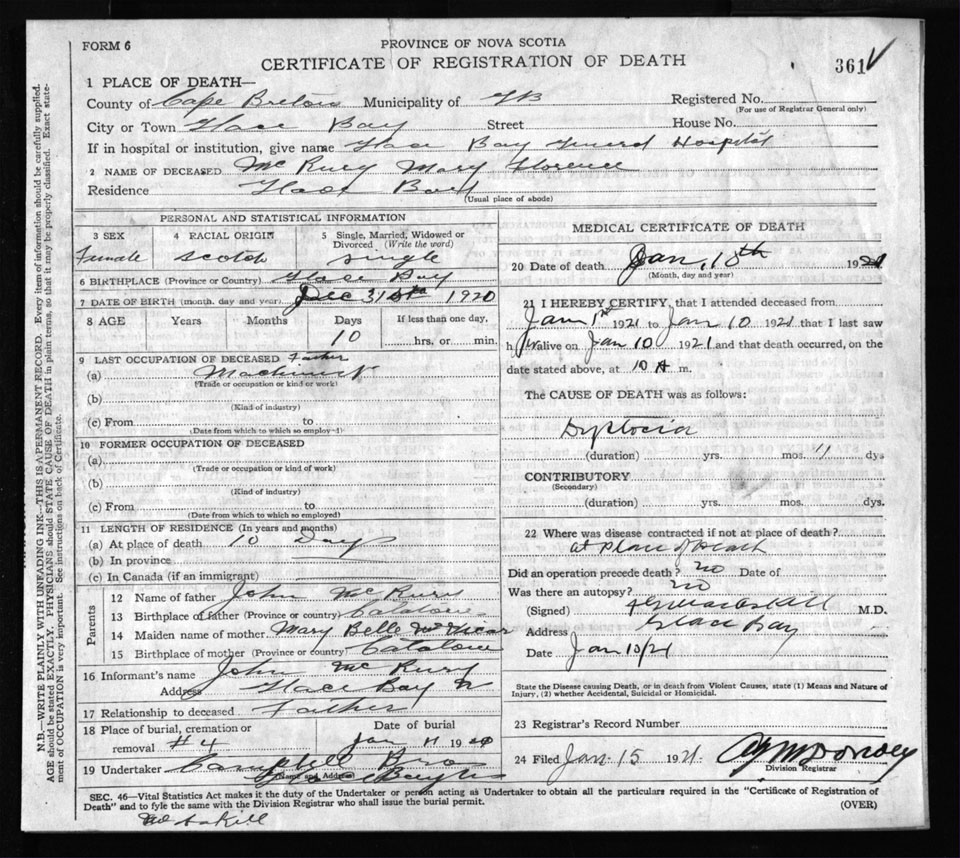 FORM 6
PROVINCE OF NOVA SCOTIA
CERTIFICATE OF REGISTRATION OF DEATH
361
1 PLACE OF DEATH—
County of Cape Breton Municipality of GB Registered No.
(For use of Registrar General only)
City or Town Glace Bay Street House No.
If in hospital or institution, give name Glace Bay General Hospital
2 NAME OF DECEASED McRury Mary Florence
Residence Glace Bay
(Usual place of abode)
PERSONAL AND STATISTICAL INFORMATION
3 SEX 4 RACIAL ORIGIN 5 Single, Married, Widowed or Divorced (Write the word)
Female Scotch single
6 BIRTHPLACE (Province or Country) Glace Bay
7 DATE OF BIRTH (month, day and year) Dec 31st 1920
8 AGE Years Months Days If less than one day.
10 hrs. or min.
9 LAST OCCUPATION OF DECEASED Father
(a) Machinist
(Trade or occupation or kind or work)
(b)
(Kind of industry)
(c) From to
(Date from which to which so employ—)
10 FORMER OCCUPATION OF DECEASED
(a)
(Trade or occupation or kind of work)
(b)
(Kind of industry)
(c) From to
(Date from which to which so employed)
11 LENGTH OF RESIDENCE (In years and months)
(a) At place of death 10 Days
(b) In province
(c) In Canada (if an immigrant)
Parents
12 Name of father John McRury
13 Birthplace of father (Province or country) Catalone
14 Maiden name of mother Mary Belle
15 Birthplace of mother (Province or country) Catalone
16 Informant's name John McRury
Address Glace Bay
17 Relationship to deceased Father
18 Place of burial, cremation or removal #4 Date of burial Jan 11 19
19 Undertaker Campbell Bros
(Name and Address)
MEDICAL CERTIFICATE OF DEATH
20 Date of death Jan, 10th 1921
(Month, day and year)
21 I HEREBY CERTIFY, that I attended deceased from
Jan 1st 1921 to Jan 10 1921 that I last saw
h er alive on Jan 10 1921 and that death occurred, on the
date stated above, at 10 A m.
The CAUSE OF DEATH was as follows:
Dystocia
(duration) yrs. mos. 11 dys
CONTRIBUTORY
(Secondary)
(duration) yrs. mos. dys.
22 Where was disease contracted if not at place of death?
at place of death
Did an operation precede death? no Date of
Was there an autopsy? no
(Signed) M.D.
Address Glace Bay
Date Jan 10/21
State the Disease causing Death, or in death from Violent Causes, state (1) Means and Nature of
Injury, (2) whether Accidental, Suicidal or Homicidal.
23 Registrar's Record Number
24 Filed Jan 15 1921
Division Registrar
SEC. 46—Vital Statistics Act makes it the duty of the Undertaker or person acting as Undertaker to obtain all the particulars required in the "Certificate of Registration of
Death" and to fyle the same with the Division Registrar who shall issue the burial permit.
(OVER)
N.B.—WRITE PLAINLY WITH UNFADING INK—THIS IS A PERMANENT RECORD. Every item of information should be carefully supplied.
AGE should be stated EXACTLY. PHYSICIANS should STATE CAUSE OF DEATH in plain terms, so that it may be properly classified. Exact state-
ment of OCCUPATION is very important. See instructions on back of Certificate.